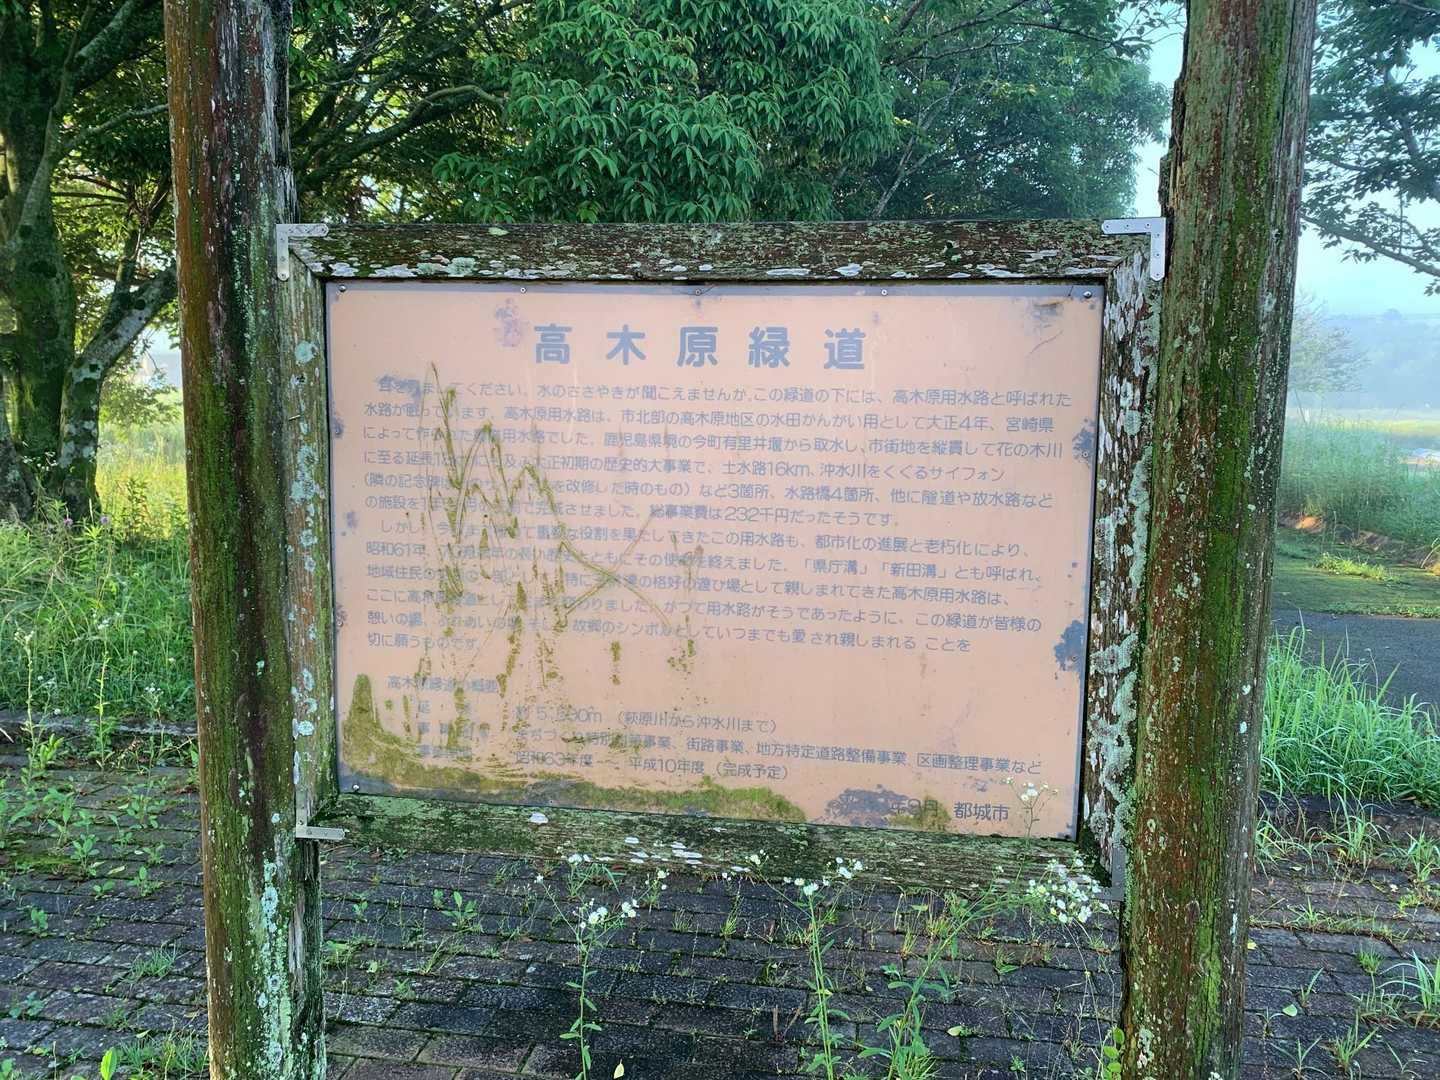 高木原緑道
耳を ましてください。水のささやきが聞こえませんか。この緑道の下には、高木原用水路と呼ばれた
水路が眠っています。高木原用水路は、市北部の高木原地区の水田かんがい用として大正4年、宮崎県
によって作 れた 用水路でした。鹿児島県境の今町有里井堰から取水し、市街地を縦貫して花の木川
に至る延長 にも及ぶ大正初期の歴史的大事業で、土水路16km、沖水川をくぐるサイフォン
(隣の記念碑は を改修した時のもの)など3箇所、水路橋4箇所、他に隧道や放水路など
の施設を で完成させました。総事業費は232千円だったそうです。
しかし、今 まで 重要な役割を果たしてきたこの用水路も、都市化の進展と老朽化により、
昭和61年、 年の長い歴史とともにその使命を終えました。「県庁溝」「新田溝」とも呼ばれ、
地域住民の 特に子供達の格好の遊び場として親しまれてきた高木原用水路は、
ここに高木原緑道として 変わりました。かつて用水路がそうであったように、この緑道が皆様の
憩いの場、ふれあいの場、そして 故郷のシンボルとしていつまでも愛され親しまれる ことを
切に願うものです。
高木原緑道の概要
延 長 約5, 0m (萩原川から沖水川まで)
事 業 特別対策事業、街路事業、地方特定道路整備事業、区画整理事業など
事業 昭和63年度 ～ 平成10年度(完成予定)
年9月 都城市